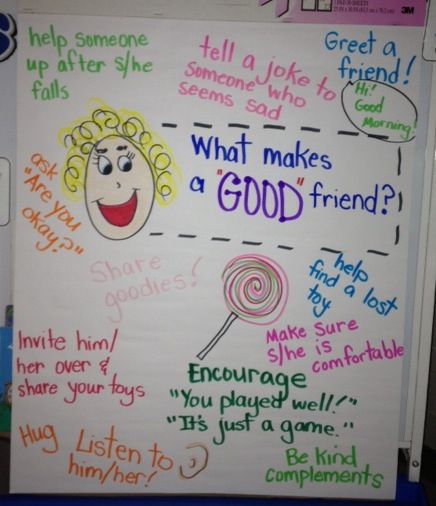 3M
help someone
up after s/he
falls
tell a joke to
someone who
seems sad
Greet a
friend!
Hi!
Good
Morning!
ask
"Are you
okay?"
What makes
a "GOOD" friend?
Share
goodies!
help
find a lost
toy
Make sure
s/he is
comfortable
Invite him/
her over &
share your toys
Encourage
"You played well!"
"It's just a game."
Hug
Listen to
him/her!
Be kind
complements